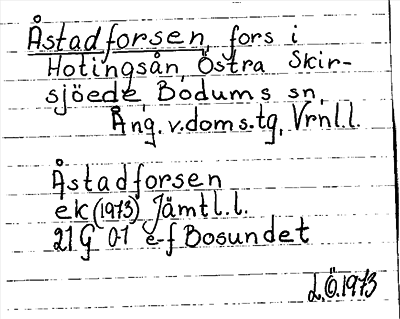 Åstadforsen, fors i
Hotingsån, Östra Skir-
sjöede, Bodums sn,
Ång. v. doms.tg, Vrnl.l.
Åstadforsen
ek (1973) Jämtl.l.
21 G 0-1 e-f Bosundet
L.Ö. 1973